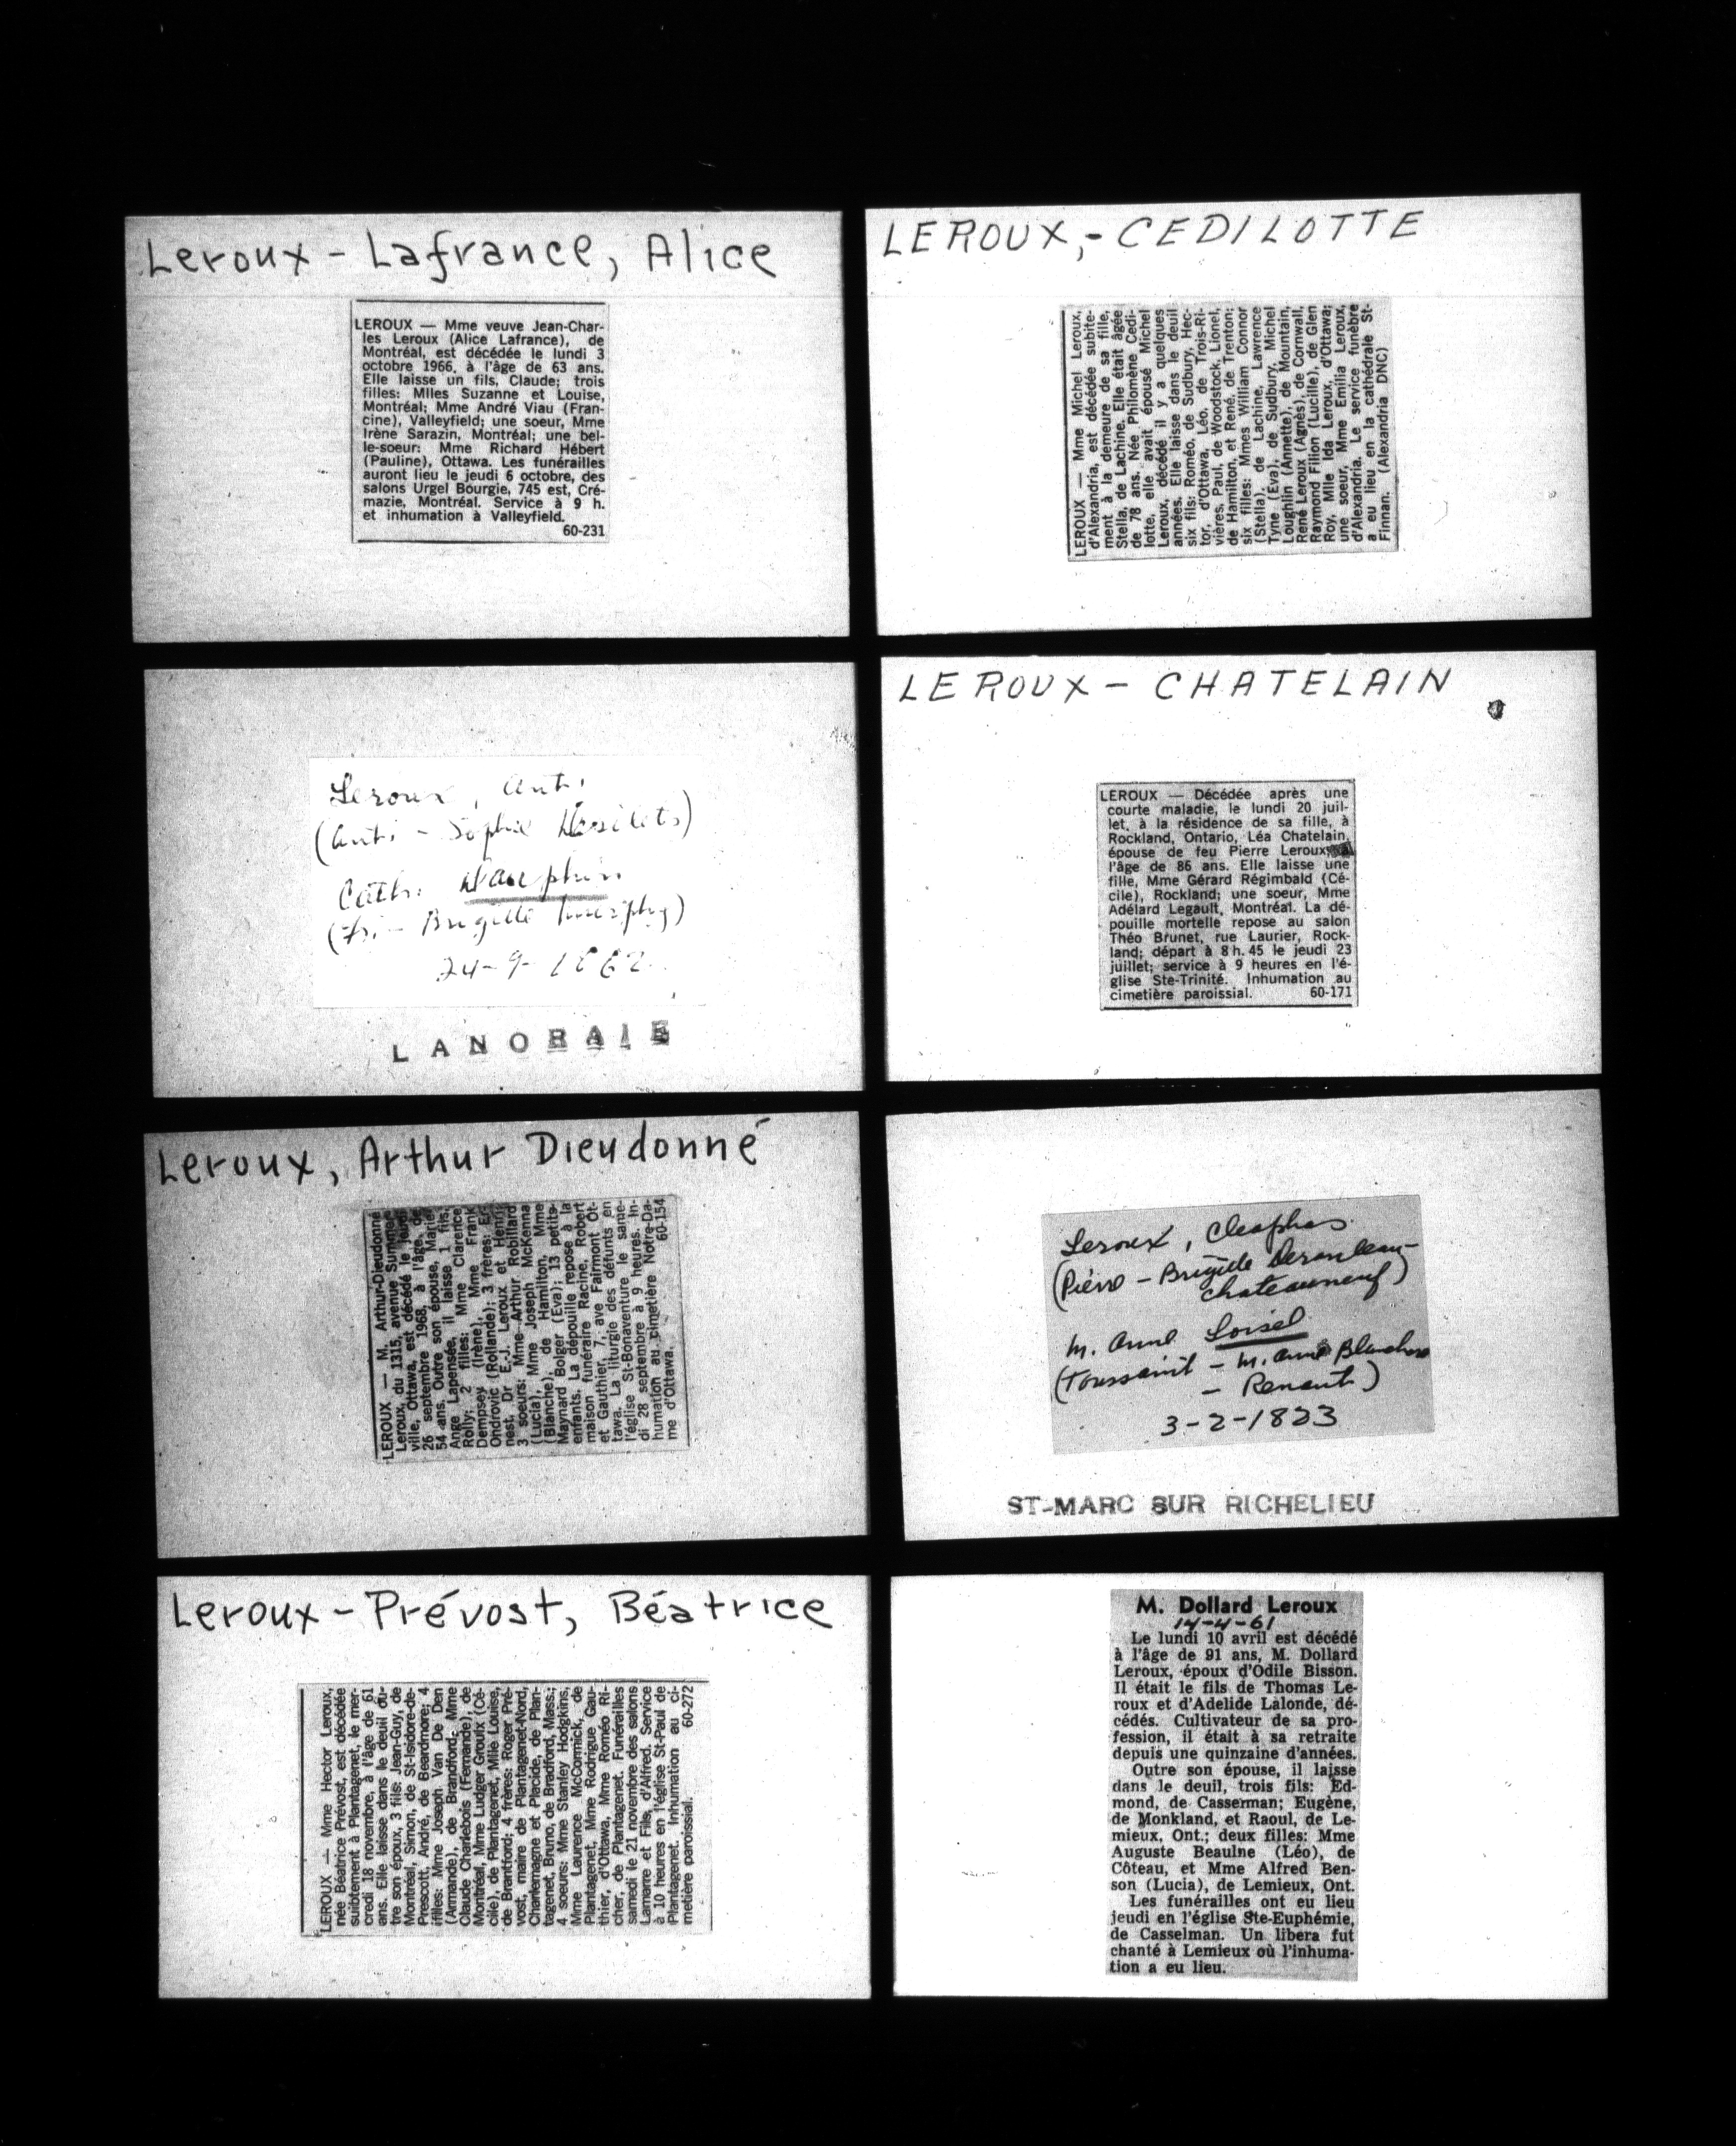 Leroux - Lafrance, Alice
LEROUX — Mme veuve Jean-Char-
les Leroux (Alice Lafrance), de
Montréal, est décédée le lundi 3
octobre 1966, à l'âge de 63 ans.
Elle laisse un fils, Claude; trois
filles: Mlles Suzanne et Louise,
Montréal; Mme André Viau (Fran-
cine), Valleyfield; une soeur, Mme
Irène Sarazin, Montréal; une bel-
le-soeur: Mme Richard Hébert
(Pauline), Ottawa. Les funérailles
auront lieu le jeudi 6 octobre, des
salons Urgel Bourgie, 745 est, Cré-
mazie, Montréal. Service à 9 h.
et inhumation à Valleyfield.
60-231
LEROUX,- CEDILOTTE
LEROUX — Mme Michel Leroux,
d'Alexandria, est décédée subite-
ment à la demeure de sa fille,
Stella, de Lachine. Elle était âgée
de 78 ans. Née Philomène Cedi-
lotte, elle avait épousé Michel
Leroux, décédé il y a quelques
années. Elle laisse dans le deuil
six fils: Roméo, de Sudbury, Hec-
tor, d'Ottawa, Léo, de Trois-Ri-
vières, Paul, de Woodstock, Lionel,
de Hamilton, et René, de Trenton;
six filles: Mmes William Connor
(Stella), de Lachine, Lawrence
Tyne (Eva), de Sudbury, Michel
Loughlin (Annette), de Mountain,
René Leroux (Agnès), de Cornwall,
Raymond Filion (Lucille), de Glen
Roy, Mlle Ida Leroux, d'Ottawa;
une soeur, Mme Emilia Leroux,
d'Alexandria. Le service funèbre
a eu lieu en la cathédrale St-
Finnan. (Alexandria DNC)
Leroux, Ant.
(Ant. - Sophie
Cath. Dauphin
- Brigitte Murphy)
24-9-1862
LANORAIE
LEROUX - CHATELAIN
LEROUX — Décédée après une
courte maladie, le lundi 20 juil-
let, à la résidence de sa fille, à
Rockland, Ontario, Léa Chatelain,
épouse de feu Pierre Leroux, à
l'âge de 86 ans. Elle laisse une
fille, Mme Gérard Régimbald (Cé-
cile), Rockland; une soeur, Mme
Adélard Legault, Montréal. La dé-
pouille mortelle repose au salon
Théo Brunet, rue Laurier, Rock-
land; départ à 8 h. 45 le jeudi 23
juillet; service à 9 heures en l'é-
glise Ste-Trinité. Inhumation au
cimetière paroissial. 60-171
Leroux, Arthur Dieudonné
LEROUX — M. Arthur-Dieudonné
Leroux, du 1315, avenue Summer-
ville, Ottawa, est décédé le jeudi
26 septembre 1968, à l'âge de
54 ans. Outre son épouse, Marie-
Ange Lapensée, il laisse 1 fils,
Rolly; 2 filles: Mme Clarence
Dempsey (Irène), Mme Frank
Ondrovic (Rollande); 3 frères: Er-
nest, Dr E.-J. Leroux et Henri;
3 soeurs: Mme Arthur Robillard
(Lucia), Mme Joseph McKenna
(Blanche), de Hamilton, Mme
Maynard Bolger (Eva); 13 petits-
enfants. La dépouille repose à la
maison funéraire Racine, Robert
et Gauthier, 7, ave Fairmont Ot-
tawa. La liturgie des défunts en
l'église St-Bonaventure le same-
di 28 septembre à 9 heures. In-
humation au cimetière Notre-Da-
me d'Ottawa. 60-154
Leroux, Cléophas
(Pierre - Brigitte
Chateauneuf)
m. Anne Loisel
(Toussaint - m. Anne
- Renault)
3-2-1823
ST-MARC SUR RICHELIEU
Leroux - Prévost, Béatrice
LEROUX — Mme Hector Leroux,
née Béatrice Prévost, est décédée
subitement à Plantagenet, le mer-
credi 18 novembre, à l'âge de 61
ans. Elle laisse dans le deuil ou-
tre son époux, 3 fils: Jean-Guy, de
Montréal, Simon, de St-Isidore-de-
Prescott, André, de Beardmore; 4
filles: Mme Joseph Van De Den
(Armande), de Brandford; Mme
Claude Charlebois (Fernande), de
Montréal, Mme Ludger Groulx (Cé-
cile), de Plantagenet, Mlle Louise,
de Brantford; 4 frères: Roger Pré-
vost, maire de Plantagenet-Nord,
Charlemagne et Placide, de Plan-
tagenet, Bruno, de Bradford, Mass.;
4 soeurs: Mme Stanley Hodgkins,
Mme Laurence McCormick, de
Plantagenet, Mme Rodrigue Gau-
thier, d'Ottawa, Mme Roméo Ri-
cher, de Plantagenet. Funérailles
samedi le 21 novembre des salons
Lamarre et Fils, d'Alfred. Service
à 10 heures en l'église St-Paul de
Plantagenet. Inhumation au ci-
metière paroissial. 60-272
M. Dollard Leroux
14-4-61
Le lundi 10 avril est décédé
à l'âge de 91 ans, M. Dollard
Leroux, époux d'Odile Bisson.
Il était le fils de Thomas Le-
roux et d'Adelide Lalonde, dé-
cédés. Cultivateur de sa pro-
fession, il était à sa retraite
depuis une quinzaine d'années.
Outre son épouse, il laisse
dans le deuil, trois fils: Ed-
mond, de Casserman; Eugène,
de Monkland, et Raoul, de Le-
mieux, Ont.; deux filles: Mme
Auguste Beaulne (Léo), de
Côteau, et Mme Alfred Ben-
son (Lucia), de Lemieux, Ont.
Les funérailles ont eu lieu
jeudi en l'église Ste-Euphémie,
de Casselman. Un libera fut
chanté à Lemieux où l'inhuma-
tion a eu lieu.